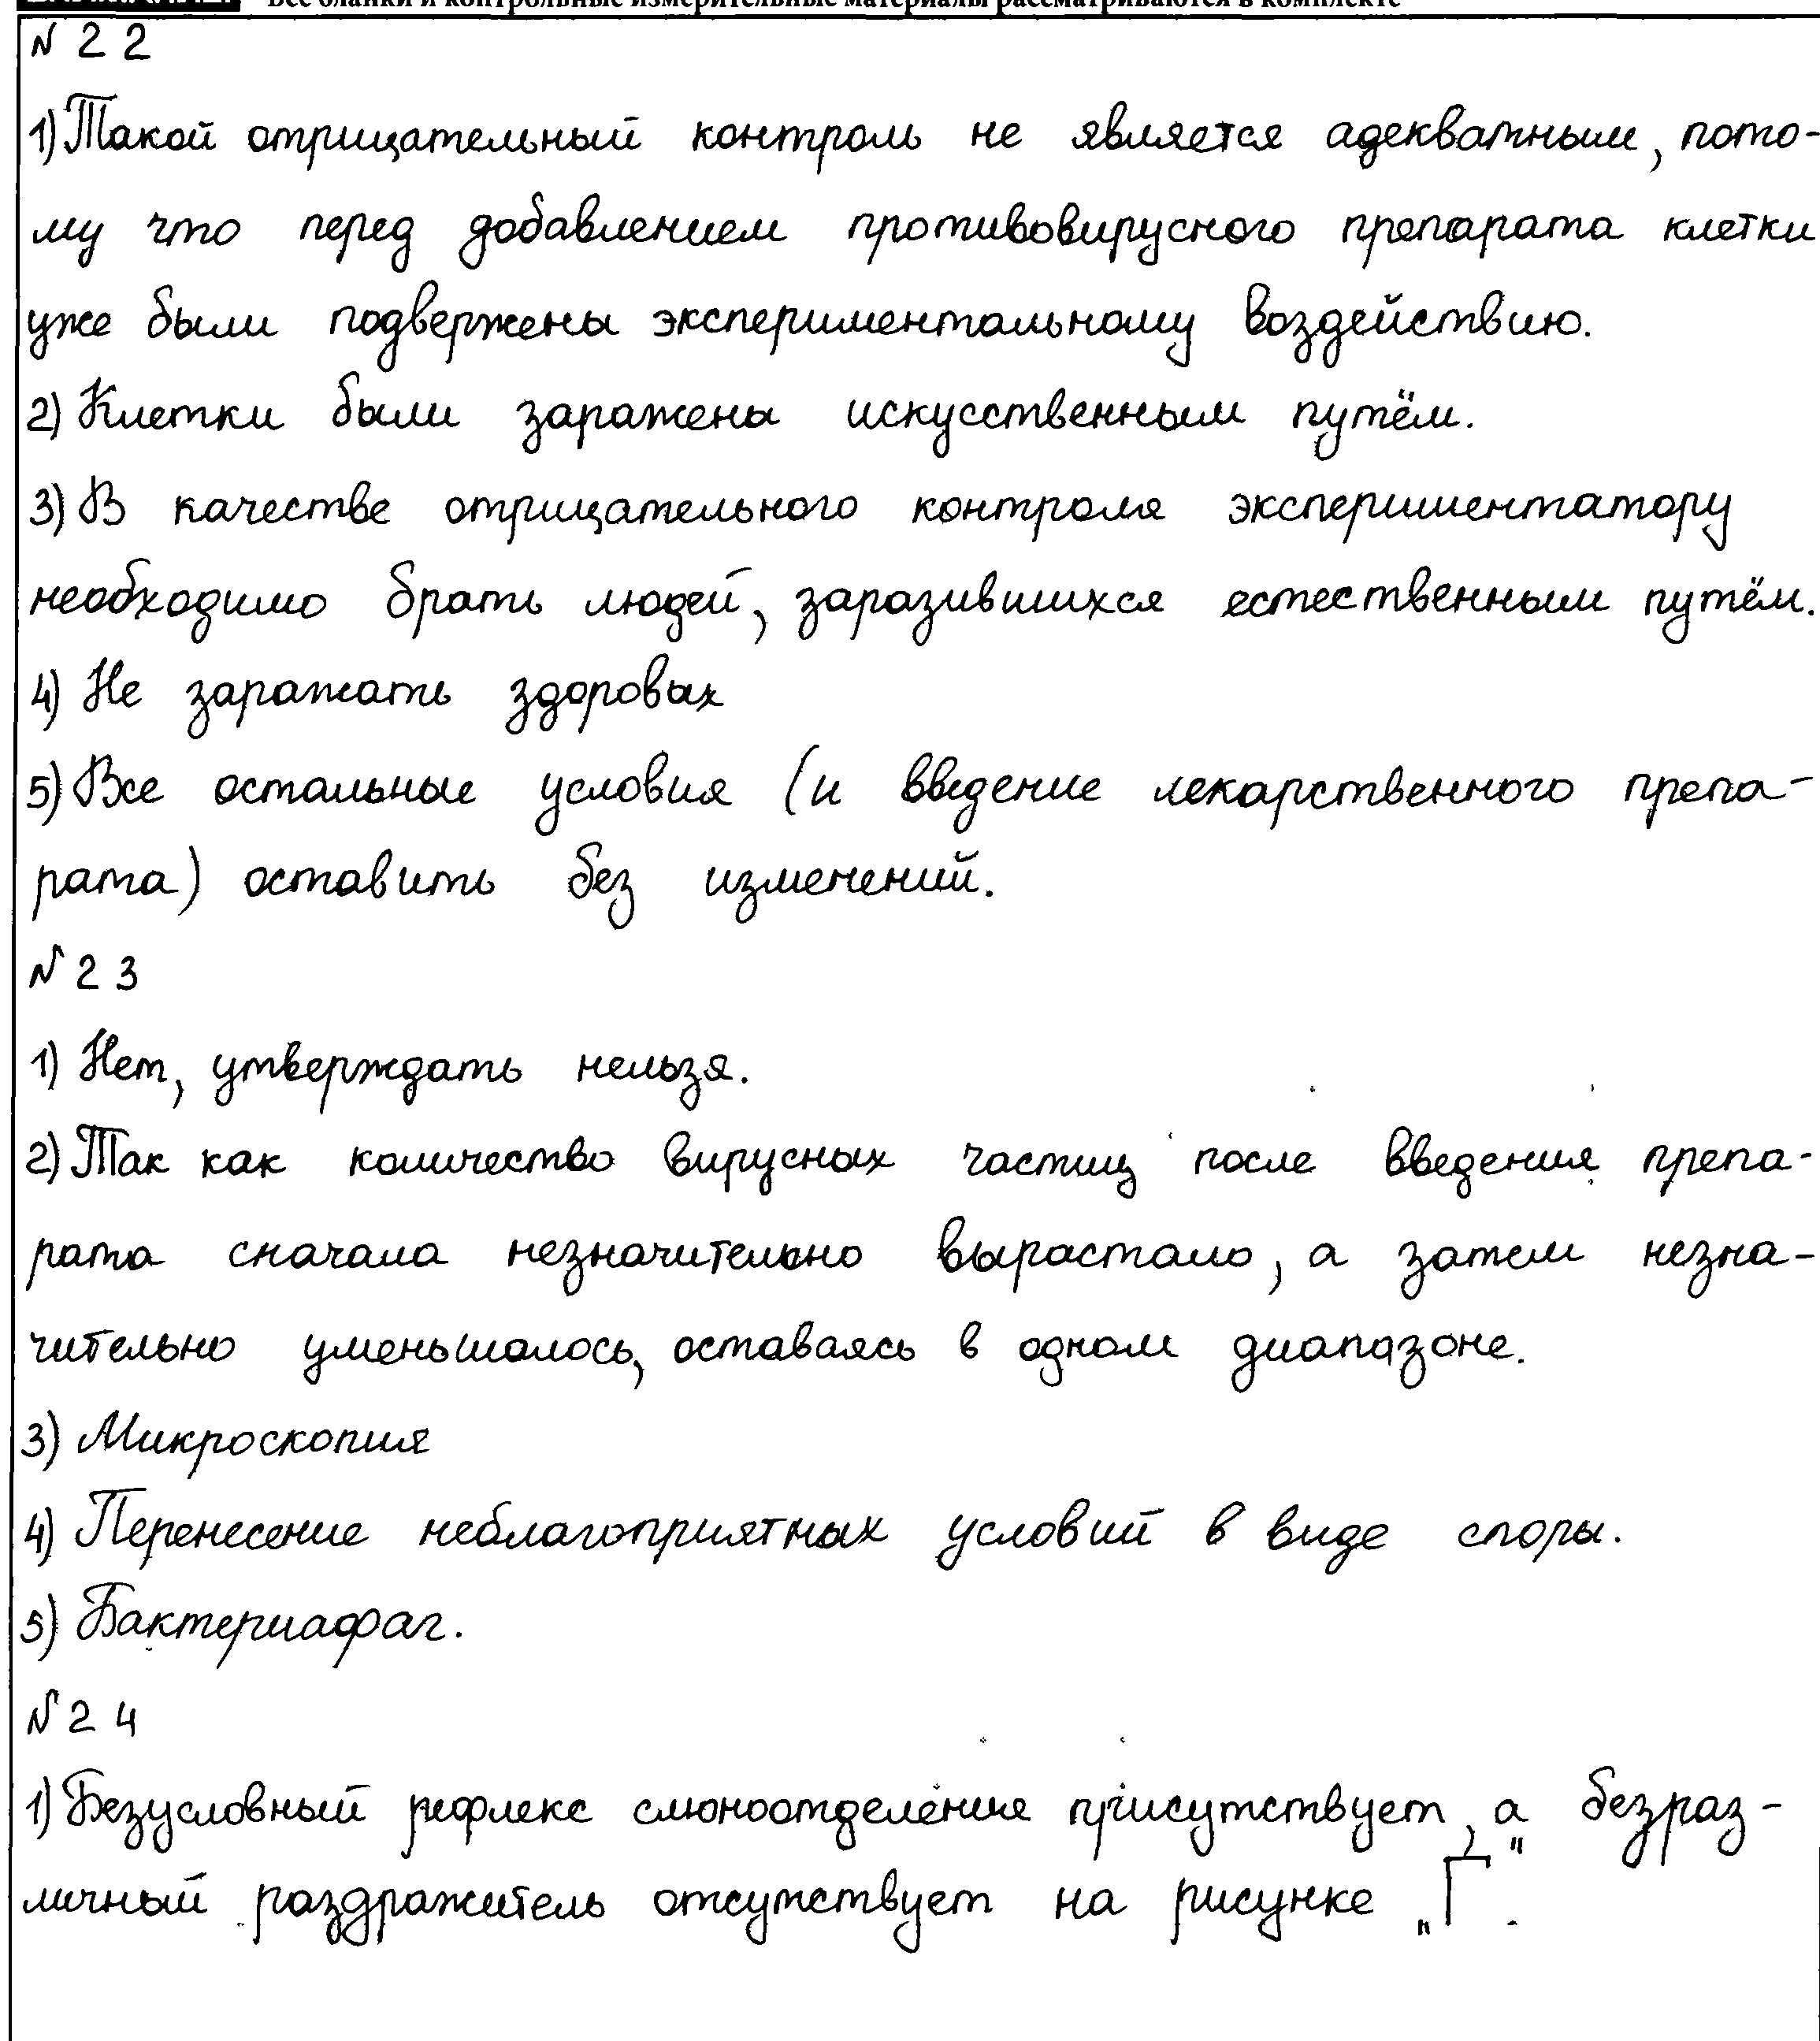 Все бланки и контрольные измерительные материалы рассматриваются в комплекте
N 22
1) Такой отрицательный контроль не является адекватным, пото-
му что перед добавлением противовирусного препарата клетки
уже были подвержены экспериментальному воздействию.
2) Клетки были заражены искусственным путём.
3) В качестве отрицательного контроля экспериментатору
необходимо брать людей, заразившихся естественным путём.
4) Не заражать здоровых
5) Все остальные условия (и введение лекарственного препа-
рата) оставить без изменений.
N 23
1) Нет, утверждать нельзя.
2) Так как количество вирусных частиц после введения препа-
рата сначала незначительно вырастало, а затем незна-
чительно уменьшалось, оставаясь в одном диапазоне.
3) Микроскопия
4) Перенесение неблагоприятных условий в виде споры.
5) Бактериафаг.
N 24
1) Безусловный рефлекс слюноотделения присутствует, а безраз-
личный раздражитель отсутствует на рисунке „Г".